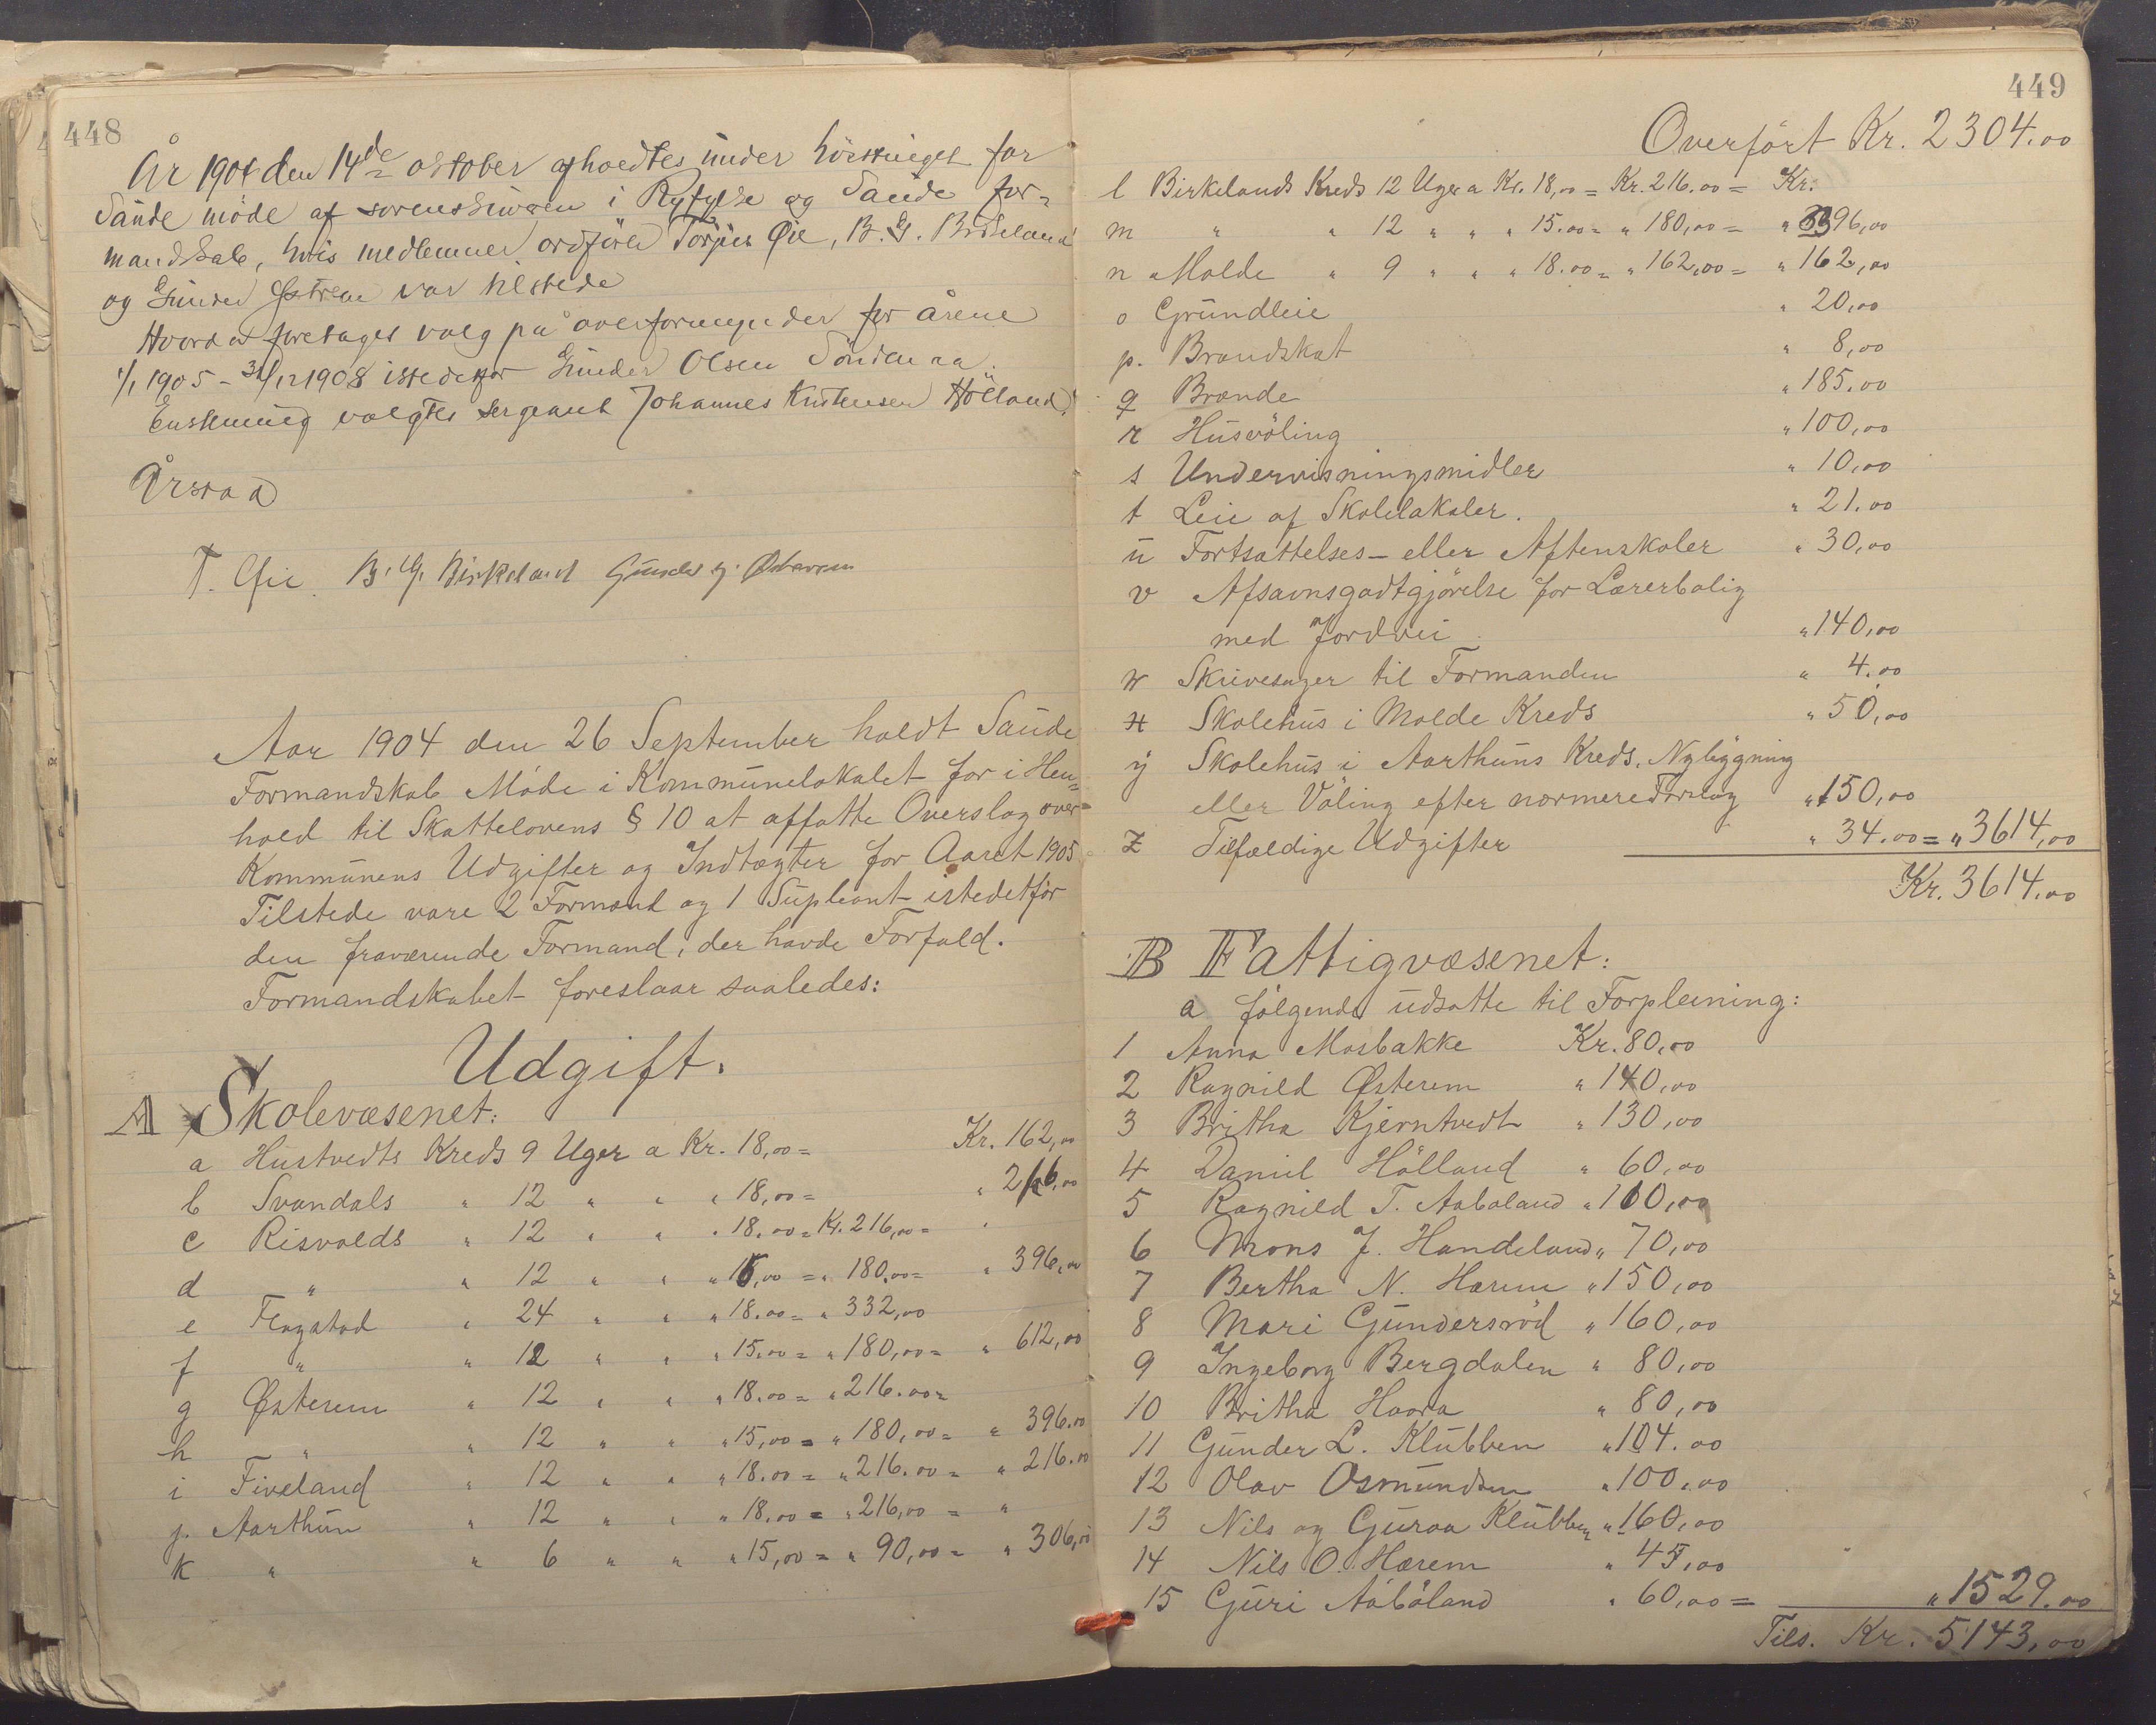 448
År 1904 den 14de october afholdtes under høsttinget for
Saude møde af sorenskriveren i Ryfylke og Saude for-
mandskab, hvis medlemmer ordfører Torjus Øie, B. G. Birkeland
og Gunder Østrem var tilstede
Hvorda foretages valg på overformynder for årene
1/1 1905 - 31/12 1908 istedetfor Gunder Olsen Søndenaa.
Enstemmig valgtes sergeant Johannes Kristensen Hölland.
Årstad
T. Øie. B. G. Birkeland Gunder G. Østerem
Aar 1904 den 26 September holdt Saude
Formandskab Møde i Kommunelokalet for i Hen=
hold til Skattelovens § 10 at affatte Overslag over=
Kommunens Udgifter og Indtægter for Aaret 1905
Tilstede vare 2 Formænd og 1 Supleant istedetfor
den fraværende Formand, der havde Forfald.
Formandskabet foreslaar saaledes:
Udgift.
A Skolevæsenet:
a Hustvedts Kreds 9 Uger a Kr. 18,00 = Kr. 162,00
b Svandals " 12 " " " 18,00 = " 216,00
c Risvolds " 12 " " " 18.00 = Kr. 216,00 = "
d " " 12 " " " 15,00 = " 180.00 = " 396,00
e Fløgstad " 24 " " " 18.00 = " 332,00
f " " 12 " " " 15.00 = " 180,00 = " 612,00
g Østerem " 12 " " " 18.00 = " 216.00 =
h " " 12 " " " 15,00 = " 180,00 = " 396.00
i Fiveland " 12 " " " 18.00 = " 216.00 = " 216.00
j. Aarthun " 12 " " " 18,00 = " 216,00 = "
k " " 6 " " " 15,00 = " 90,00 = " 306,00
449
Overført Kr. 2304.00
l Birkelands Kreds 12 Uger a Kr. 18,00 = Kr. 216.00 = Kr.
m " " 12 " " " 15.00 = " 180,00 = " 396,00
n Molde " 9 " " " 18.00 = " 162,00 = " 162,00
o Grundleie " 20,00
p. Brandskat " 8,00
q Brænde " 185.00
r Husvöling " 100,00
s Undervisningsmidler " 10,00
t Leie af Skolelokaler. " 21.00
u Fortsættelses- eller Aftenskoler " 30,00
v Afsavnsgodtgjørelse for Lærerbolig
med Jordvei " 140,00
w Skrivesager til Formanden " 4.00
x Skolehus i Molde Kreds " 50,00
y Skolehus i Aarthuns Kreds. Nybygning
eller Völing efter nærmere Forslag " 150,00
z Tilfældige Udgifter " 34.00 = " 3614,00
Kr. 3614.00
B Fattigvæsenet:
a følgende udsatte til Forpleining:
1 Anna Mosbakke Kr. 80,00
2 Ragnild Østerem " 140,00
3 Britha Kjerntvedt " 130,00
4 Daniel Hölland " 60,00
5 Ragnild T. Aaboland " 100,00
6 Mons J. Handeland " 70,00
7 Bertha N. Hærem " 150,00
8 Mari Gundersröd " 160,00
9 Ingeborg Bergdalen " 80,00
10 Britha Haara " 80,00
11 Gunder L. Klubben " 104.00
12 Olav Osmundsen " 100,00
13 Nils og Guroa Klubben " 160,00
14 Nils O. Hærem " 45,00
15 Guri Aaböland " 60,00 = " 1529.00
Tils. Kr. 5143,00